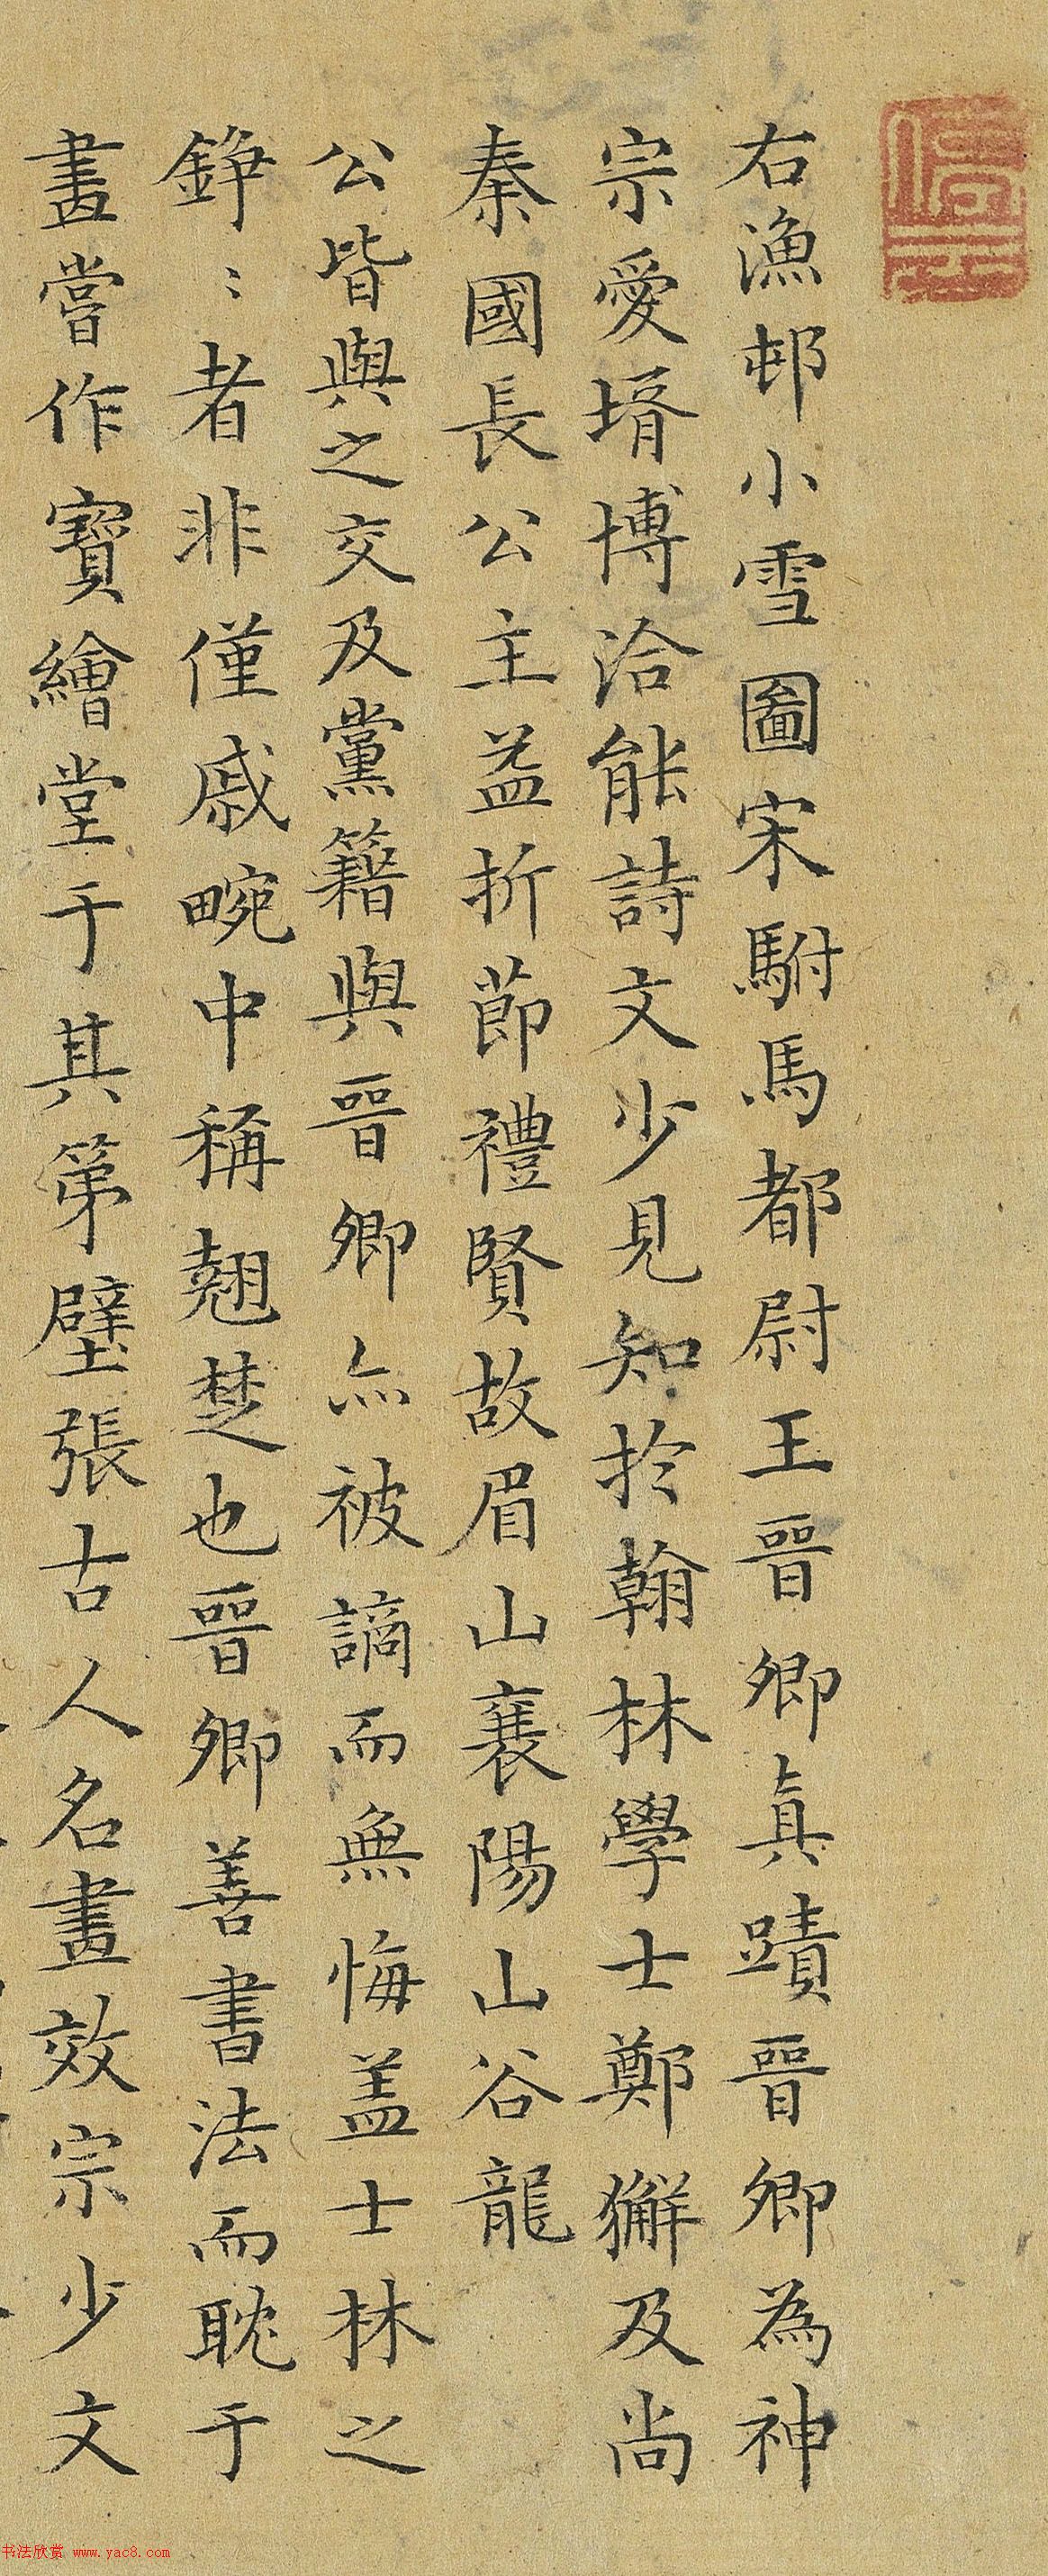 右漁邨小雪圖宋駙馬都尉王晉卿真蹟晉卿為神
宗愛壻博洽能詩文少見知於翰林學士鄭獬及尚
秦國長公主益折節禮賢故眉山襄陽山谷龍
公皆與之交及黨籍與晉卿亦被謫而無悔蓋士林之
錚〻者非僅戚畹中稱翹楚也晉卿善書法而耽于
畫嘗作寶繪堂于其第壁張古人名畫效宗少文
书法欣赏 www.yac8.com